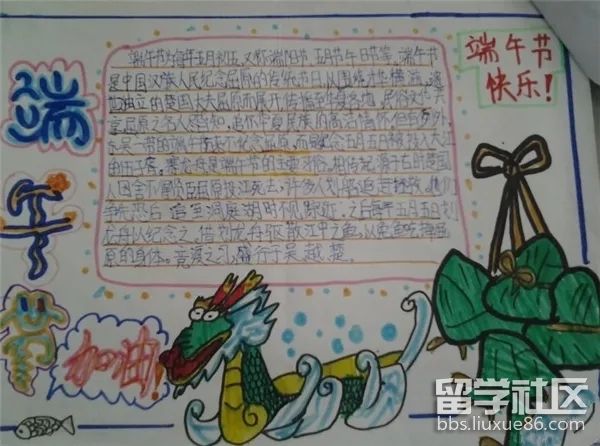 端午节
端午节为每年五月初五,又称端阳节、五月节午日节等,端午节
是中国汉族人民纪念屈原的传统节日,以围绕才华横溢、遗
世独立的楚国大夫屈原而展开,传播至华夏各地,民俗文
享屈原之名人尽皆知,追怀华夏民族的高洁情怀但有
东吴一带的端午历来不纪念屈原,而纪念五月五日被投入大江
的伍子胥。赛龙舟是端午节的主要习俗。相传起源于古时楚国
人因舍不得贤臣屈原投江死去,许多人划船追赶拯救。他们
争先恐后,追至洞庭湖时不见踪迹。之后每年五月五日划
龙舟以纪念之。借划龙舟驱散江中之鱼,以免鱼吃掉屈
原的身体。竞渡之习,盛行于吴、越、楚。
端午节
快乐!
加油!
留学社区
bbs.liuxue86.com